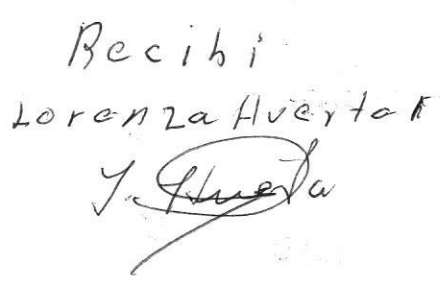 Recibi
Lorenza Huerta R
J. Huerta